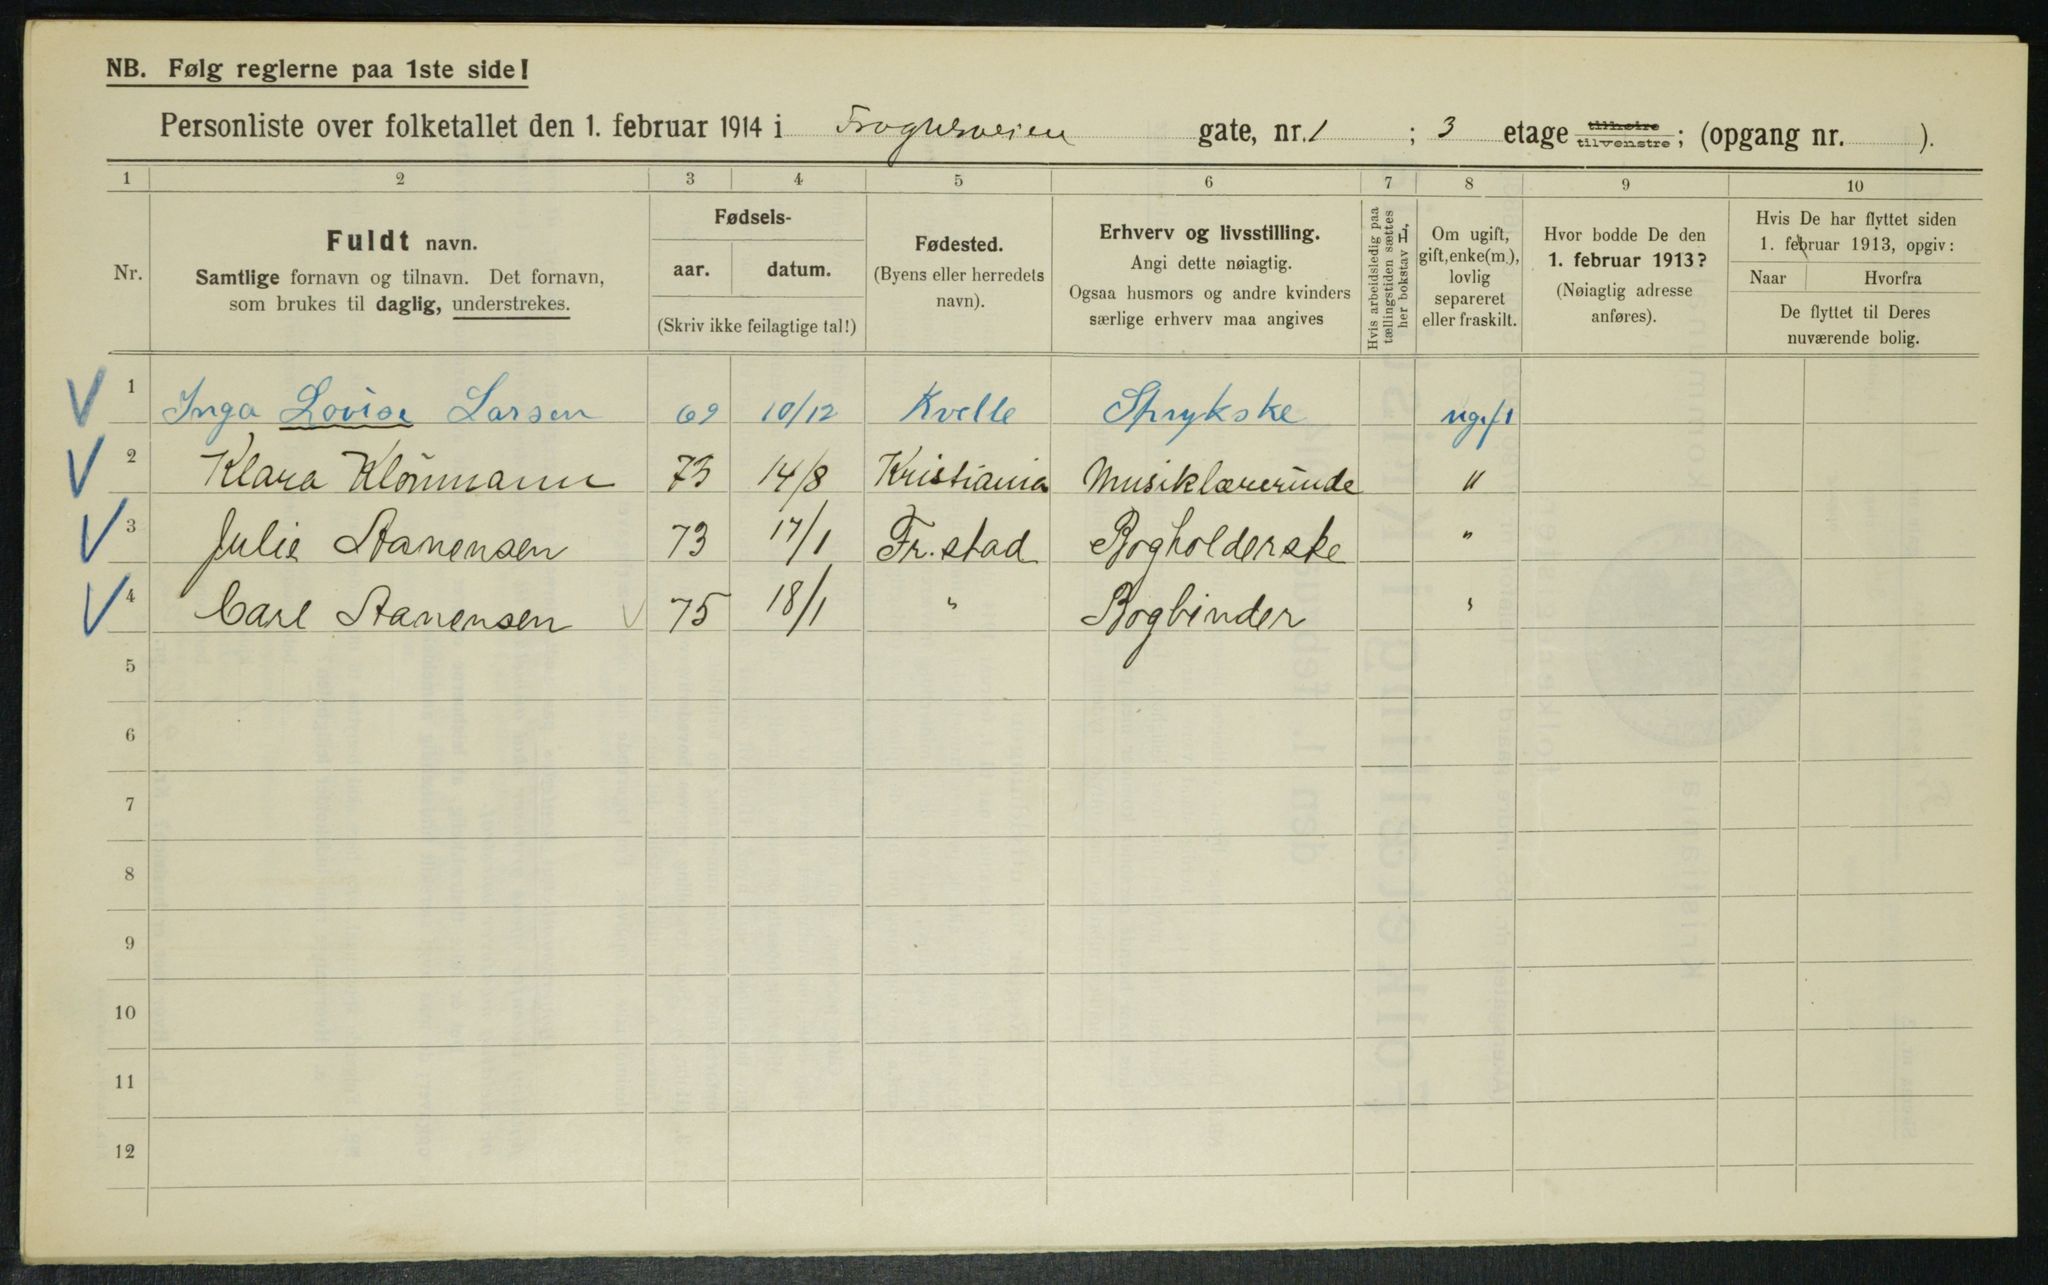 NB. Følg reglerne paa 1ste side!
Personliste over folketallet den 1. februar 1914 i Frognerveien gate, nr. 1 ; 3 etage tilhøire tilvenstre ; (opgang nr. ).
1 2 3 4 5 6 7 8 9 10
Nr.
Fuldt navn.
Samtlige fornavn og tilnavn. Det fornavn,
som brukes til daglig, understrekes.
Fødsels-
aar. datum.
(Skriv ikke feilagtige tal!)
Fødested.
(Byens eller herredets
navn).
Erhverv og livsstilling.
Angi dette nøiagtig.
Ogsaa husmors og andre kvinders
særlige erhverv maa angives
Hvis arbeidsledig paa
tællingstiden sættes
her bokstav L.
Om ugift,
gift, enke(m.),
lovlig
separeret
eller fraskilt.
Hvor bodde De den
1. februar 1913?
(Nøiagtig adresse
anføres).
Hvis De har flyttet siden
1. februar 1913, opgiv:
Naar Hvorfra
De flyttet til Deres
nuværende bolig.
1 Inga Lovise Larsen 69 10/12 Kvelle Strykske ugift
2 Klara Klönmann 73 14/8 Kristiania Musiklærerinde "
3 Julie Aanensen 73 17/1 Fr.stad Bogholderske "
4 Carl Aanensen 75 18/1 " Bogbinder "
5
6
7
8
9
10
11
12